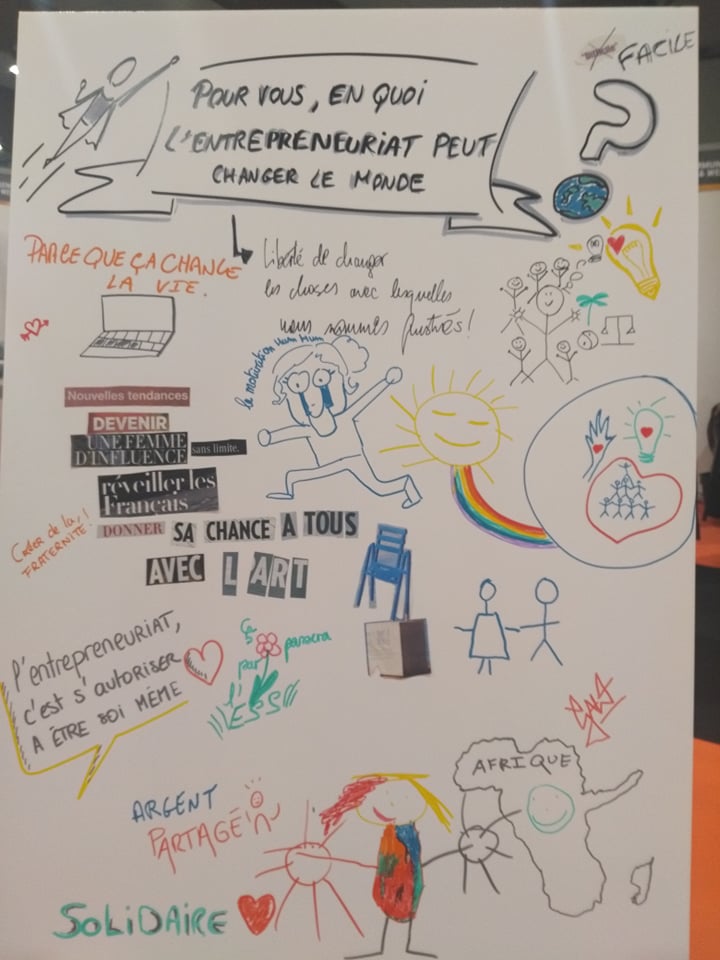 FACILE
POUR VOUS, EN QUOI
L'ENTREPRENEURIAT PEUT
CHANGER LE MONDE
?
PARCE QUE ÇA CHANGE
LA VIE.
Liberté de changer
les choses avec lesquelles
nous sommes frustrés!
la motivation
Nouvelles tendances
DEVENIR
UNE FEMME
D'INFLUENCE sans limite.
réveiller les
Français
DONNER SA CHANCE A TOUS
AVEC L'ART
Créer de la
FRATERNITÉ!
l'entrepreneuriat,
c'est s'autoriser
A ÊTRE SOI MÊME
Ça
passera
par
l'ESS
AFRIQUE
ARGENT
PARTAGÉ
SOLIDAIRE